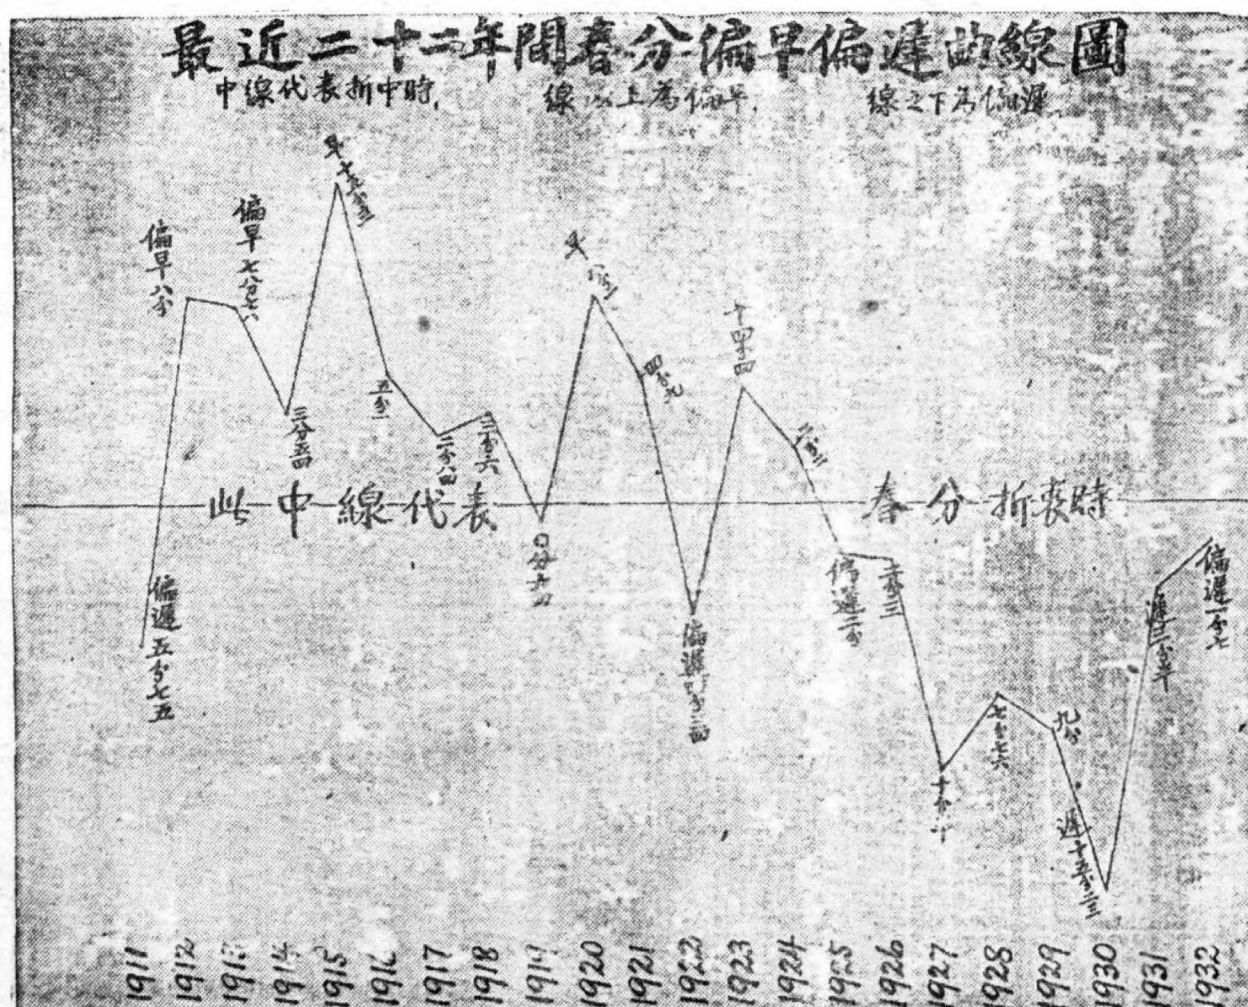 最近二十二年間春分偏早偏遲曲線圖
中線代表折中時,
線以上為偏早,
線之下為偏遲
偏遲五分七五
偏早八分
偏早七分六
三分五四
早十
五分一
二分八四
三分六
〇分六四
早八
四分九
偏遲
四
偏遲二分
二分三
十分
七分七六
九分
遲十五分三
遲三分
偏遲一分七
此中線代表
春分折衷時
1911
1912
1913
1914
1915
1916
1917
1918
1919
1920
1921
1922
1923
1924
1925
1926
1927
1928
1929
1930
1931
1932